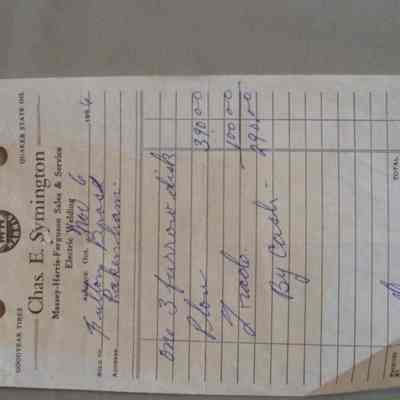 GOODYEAR TIRES QUAKER STATE OIL
Chas. E. Symington
Massey-Harris-Ferguson Sales & Service
Electric Welding
Ont. Nov 6 196
SOLD TO Fulton Bros
ADDRESS Pakenham
One 3 furrow disk
Plow 390.00
Trade 100.00
By Cash 290.00
TOTAL